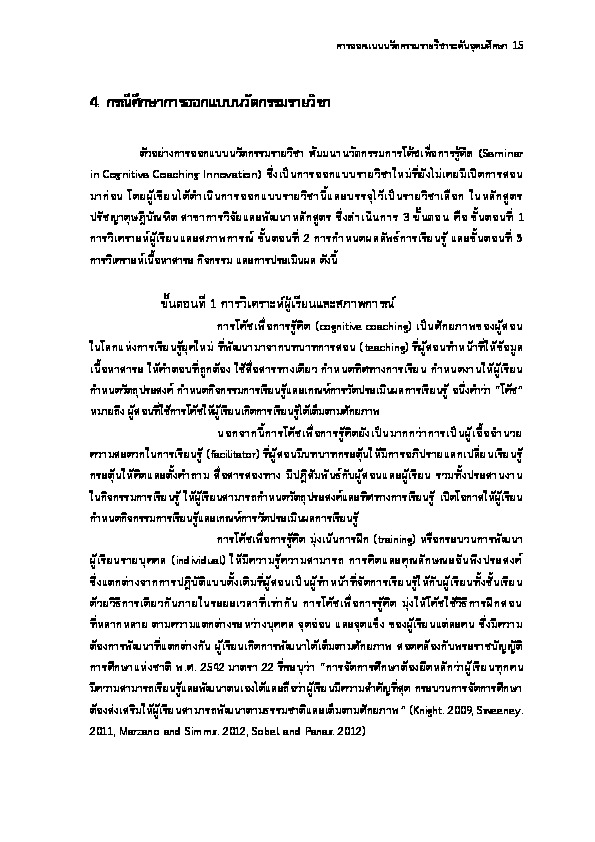 การออกแบบนวัตกรรมรายวิชาระดับอุดมศึกษา 15
4. กรณีศึกษาการออกแบบนวัตกรรมรายวิชา
ตัวอย่างการออกแบบนวัตกรรมรายวิชา สัมมนานวัตกรรมการโค้ชเพื่อการรู้คิด (Seminar
in Cognitive Coaching Innovation) ซึ่งเป็นการออกแบบรายวิชาใหม่ที่ยังไม่เคยมีเปิดการสอน
มาก่อน โดยผู้เขียนได้ดำเนินการออกแบบรายวิชานี้และบรรจุไว้เป็นรายวิชาเลือก ในหลักสูตร
ปรัชญาดุษฎีบัณฑิต สาขาการวิจัยและพัฒนาหลักสูตร ซึ่งดำเนินการ 3 ขั้นตอน คือ ขั้นตอนที่ 1
การวิเคราะห์ผู้เรียนและสภาพการณ์ ขั้นตอนที่ 2 การกำหนดผลลัพธ์การเรียนรู้ และขั้นตอนที่ 3
การวิเคราะห์เนื้อหาสาระ กิจกรรม และการประเมินผล ดังนี้
ขั้นตอนที่ 1 การวิเคราะห์ผู้เรียนและสภาพการณ์
การโค้ชเพื่อการรู้คิด (cognitive coaching) เป็นศักยภาพของผู้สอน
ในโลกแห่งการเรียนรู้ยุคใหม่ ที่พัฒนามาจากบทบาทการสอน (teaching) ที่ผู้สอนทำหน้าที่ให้ข้อมูล
เนื้อหาสาระ ให้คำตอบที่ถูกต้อง ใช้สื่อสารทางเดียว กำหนดทิศทางการเรียน กำหนดงานให้ผู้เรียน
กำหนดวัตถุประสงค์ กำหนดกิจกรรมการเรียนรู้และเกณฑ์การวัดประเมินผลการเรียนรู้ อนึ่งคำว่า "โค้ช"
หมายถึง ผู้สอนที่ใช้การโค้ชให้ผู้เรียนเกิดการเรียนรู้ได้เต็มตามศักยภาพ
นอกจากนี้การโค้ชเพื่อการรู้คิดยังเป็นมากกว่าการเป็นผู้เอื้ออำนวย
ความสะดวกในการเรียนรู้ (facilitator) ที่ผู้สอนมีบทบาทกระตุ้นให้มีการอภิปรายแลกเปลี่ยนเรียนรู้
กระตุ้นให้คิดและตั้งคำถาม สื่อสารสองทาง มีปฏิสัมพันธ์กับผู้สอนและผู้เรียน รวมทั้งประสานงาน
ในกิจกรรมการเรียนรู้ ให้ผู้เรียนสามารถกำหนดวัตถุประสงค์และทิศทางการเรียนรู้ เปิดโอกาสให้ผู้เรียน
กำหนดกิจกรรมการเรียนรู้และเกณฑ์การวัดประเมินผลการเรียนรู้
การโค้ชเพื่อการรู้คิด มุ่งเน้นการฝึก (training) หรือกระบวนการพัฒนา
ผู้เรียนรายบุคคล (individual) ให้มีความรู้ความสามารถ การคิดและคุณลักษณะอันพึงประสงค์
ซึ่งแตกต่างจากการปฏิบัติแบบดั้งเดิมที่ผู้สอนเป็นผู้ทำหน้าที่จัดการเรียนรู้ให้กับผู้เรียนทั้งชั้นเรียน
ด้วยวิธีการเดียวกันภายในระยะเวลาที่เท่ากัน การโค้ชเพื่อการรู้คิด มุ่งให้โค้ชใช้วิธีการฝึกสอน
ที่หลากหลาย ตามความแตกต่างระหว่างบุคคล จุดอ่อน และจุดแข็ง ของผู้เรียนแต่ละคน ซึ่งมีความ
ต้องการพัฒนาที่แตกต่างกัน ผู้เรียนเกิดการพัฒนาได้เต็มตามศักยภาพ สอดคล้องกับพระราชบัญญัติ
การศึกษาแห่งชาติ พ.ศ. 2542 มาตรา 22 ที่ระบุว่า "การจัดการศึกษาต้องยึดหลักว่าผู้เรียนทุกคน
มีความสามารถเรียนรู้และพัฒนาตนเองได้และถือว่าผู้เรียนมีความสำคัญที่สุด กระบวนการจัดการศึกษา
ต้องส่งเสริมให้ผู้เรียนสามารถพัฒนาตามธรรมชาติและเต็มตามศักยภาพ" (Knight. 2009, Sweeney.
2011, Marzano and Simms. 2012, Sobel and Panas. 2012)